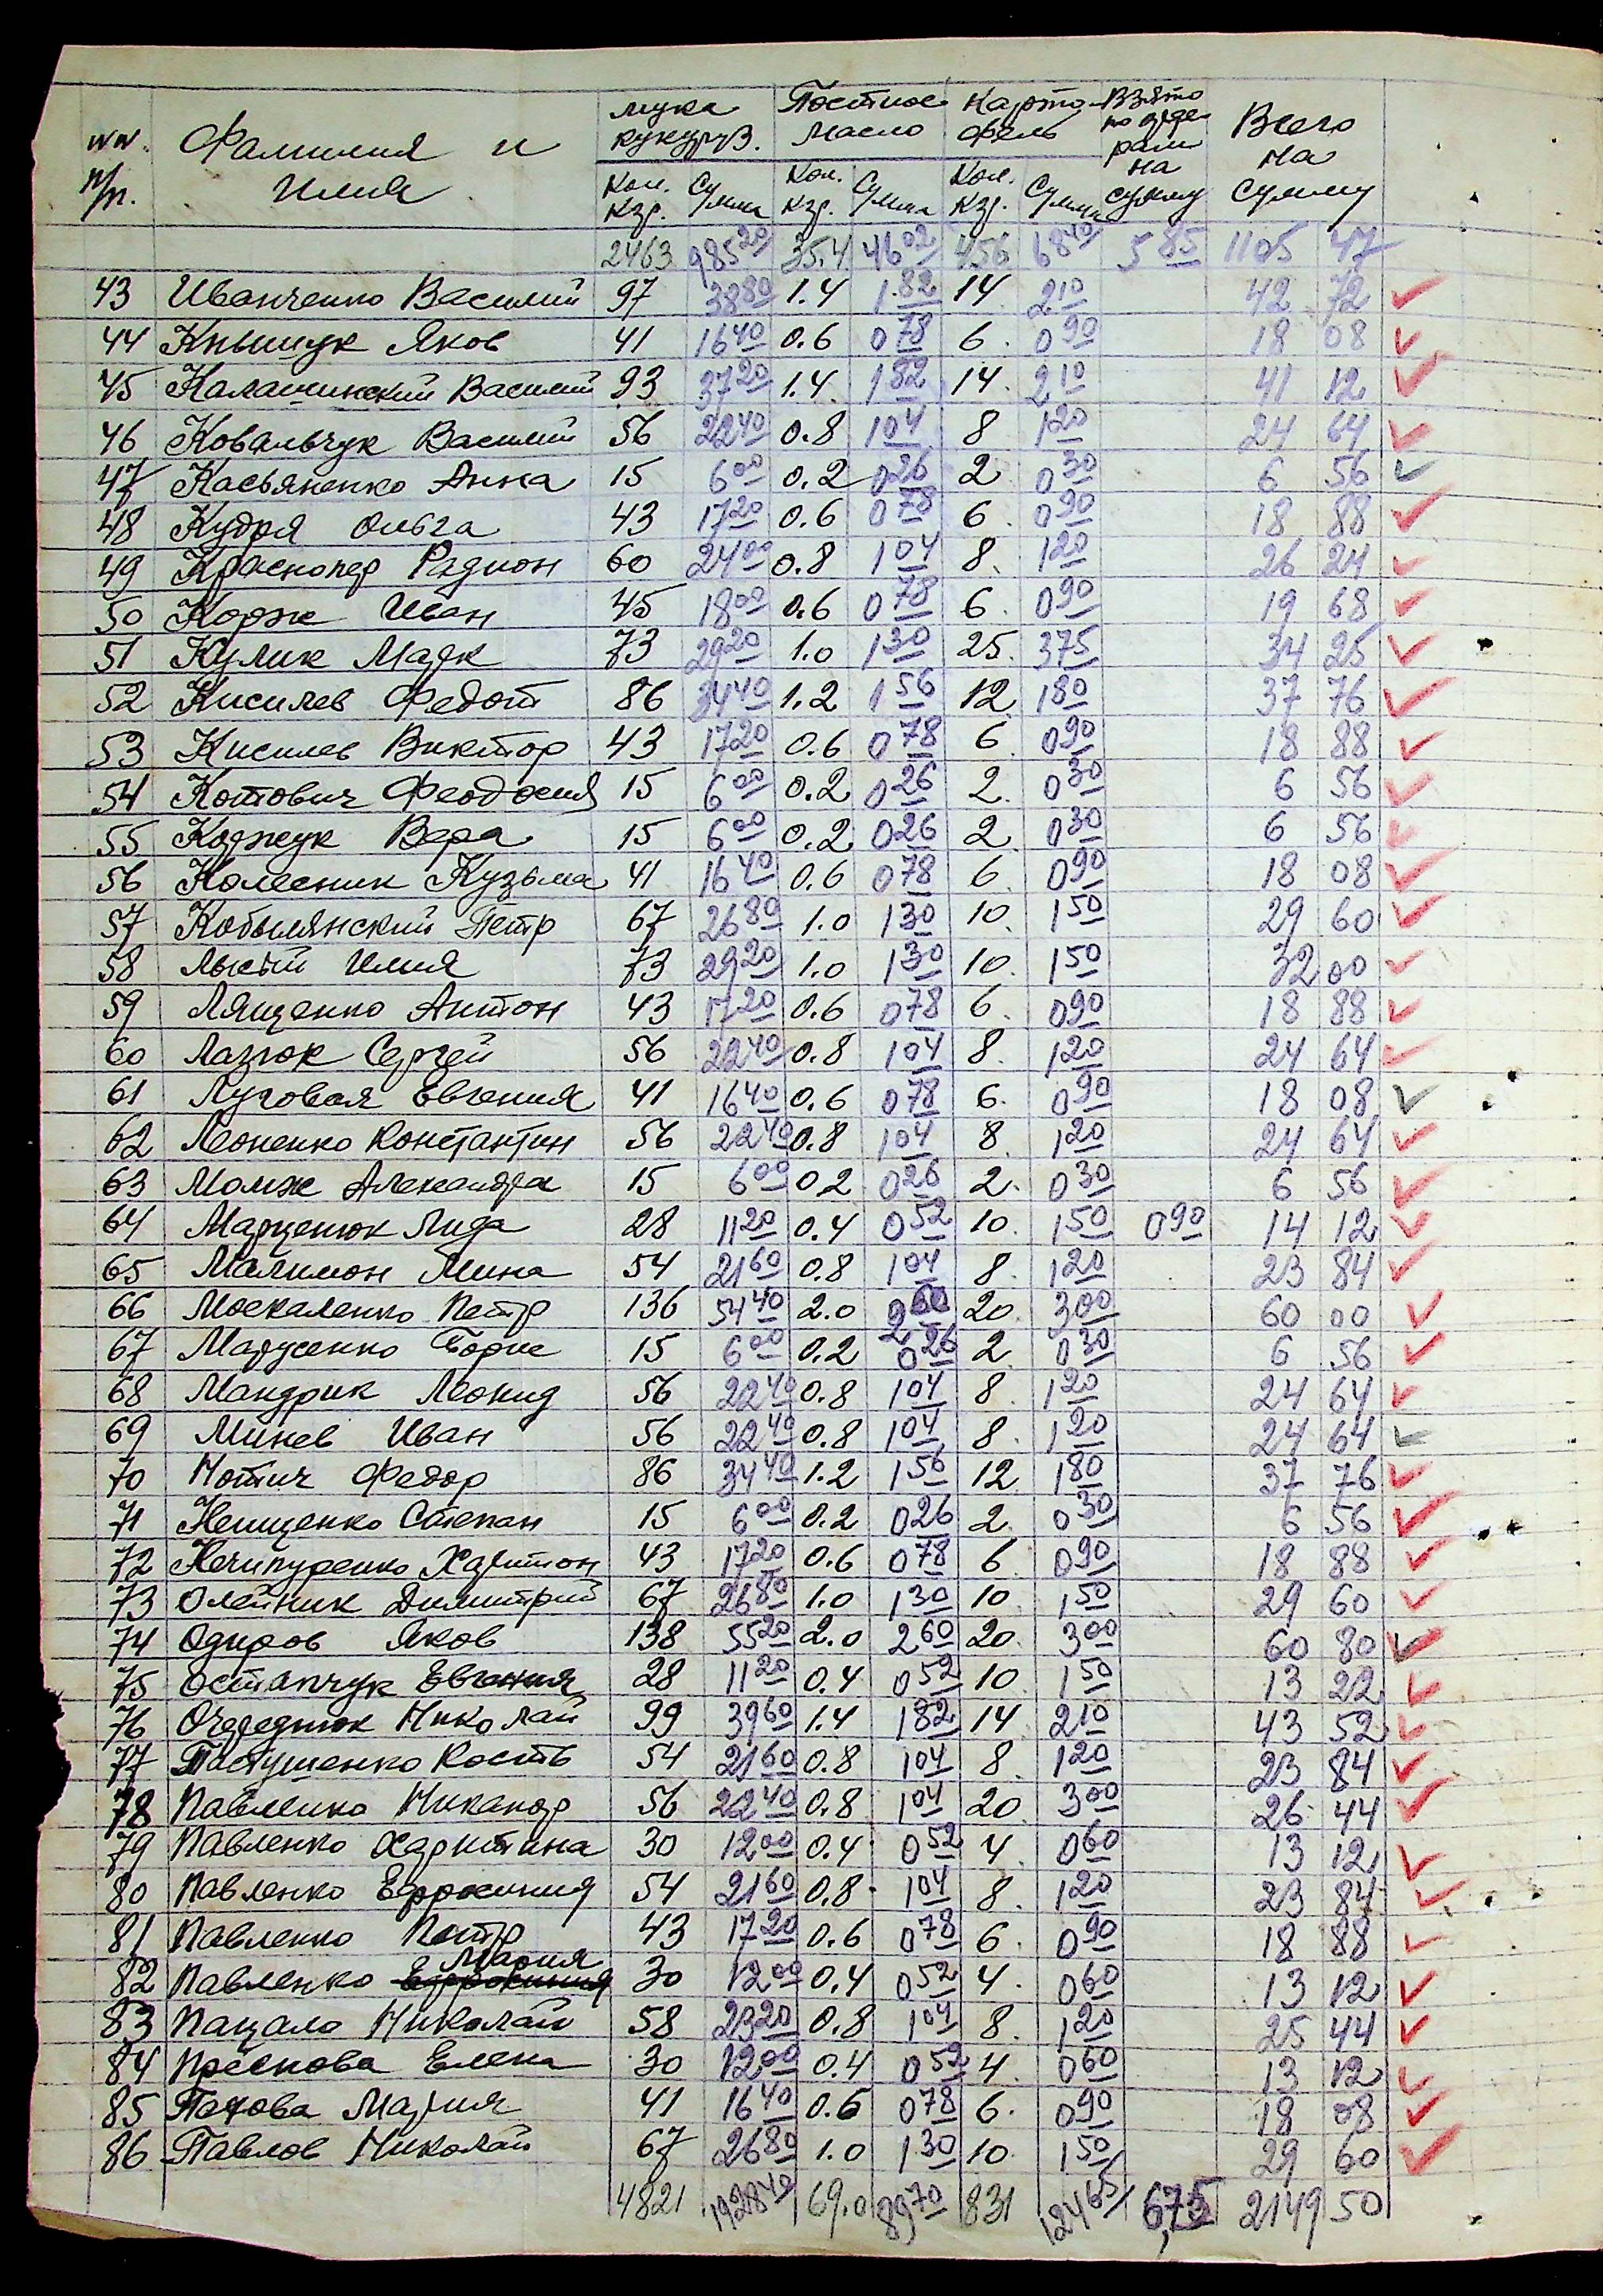 №№ п/п. Фамилия и Имя мука кукуруз. Постное масло Картофель Взято по ордерам на сумму Всего на сумму
Кол. кгр. Сумма Кол. кгр. Сумма Кол. кгр. Сумма
2463 985 20 35.4 46 02 456 68 40 5 85 1105 47
43 Иванченко Василий 97 38 80 1.4 1.82 14 2 10 42 72
44 Кныщук Яков 41 16 40 0.6 0 78 6. 0 90 18 08
45 Калашинский Василий 93 37 20 1.4. 1 82 14. 2 10 41 12
46 Ковальчук Василий 56 22 40 0.8 1 04 8 1 20 24 64
47 Касьяненко Анна 15 6 00 0.2 0 26 2 0 30 6 56
48 Кудря Ольга 43 17 20 0.6 0 78 6. 0 90 18 88
49 Краснопер Радион 60 24 00 0.8 1 04 8. 1 20 26 24
50 Корж Иван 45 18 00 0.6 0 78 6. 0 90 19 68
51 Кулик Марк 73 29 20 1.0 1 30 25. 3 75 34 25
52 Кисилев Федот 86 34 40 1.2 1 56 12 1 80 37 76
53 Кисилев Виктор 43 17 20 0.6 0 78 6 0 90 18 88
54 Котович Феодосия 15 6 00 0.2 0 26 2. 0 30 6 56
55 Коджук Вера 15 6 00 0.2 0 26 2 0 30 6 56
56 Колесник Кузьма 41 16 40 0.6 0 78 6 0 90 18 08
57 Кобылянский Петр 67 26 80 1.0 1 30 10. 1 50 29 60
58 Лысый Илия 73 29 20 1.0 1 30 10. 1 50 32 00
59 Лященко Антон 43 17 20 0.6 0 78 6. 0 90 18 88
60 Лазюк Сергей 56 22 40 0.8 1 04 8. 1 20 24 64
61 Луговая Евгения 41 16 40 0.6 0 78 6. 0 90 18 08
62 Леоненко Константин 56 22 40 0.8 1 04 8 1 20 24 64
63 Момже Александра 15 6 00 0.2 0 26 2. 0 30 6 56
64 Марценюк Лида 28 11 20 0.4 0 52 10. 1 50 0 90 14 12
65 Малимон Мина 54 21 60 0.8 1 04 8. 1 20 23 84
66 Москаленко Петр 136 54 40 2.0 2 60 20 3 00 60 00
67 Марусенко Борис 15 6 00 0.2 0 26 2 0 30 6 56
68 Мандрик Леонид 56 22 40 0.8 1 04 8. 1 20 24 64
69 Минев Иван 56 22 40 0.8 1 04 8. 1 20 24 64
70 Нотич Федор 86 34 40 1.2 1 56 12 1 80 37 76
71 Нешценко Степан 15 6 00 0.2 0 26 2. 0 30 6 56
72 Нечипуренко Харитон 43 17 20 0.6 0 78 6 0 90 18 88
73 Олейник Димитрий 67 26 80 1.0 1 30 10 1 50 29 60
74 Одиров Яков 138 55 20 2.0 2 60 20. 3 00 60 80
75 Остапчук Евгения 28 11 20 0.4 0 52 10 1 50 13 22
76 Очереднюк Николай 99 39 60 1.4 1 82 14 2 10 43 52
77 Пастушенко Кость 54 21 60 0.8 1 04 8. 1 20 23 84
78 Павленко Никанор 56 22 40 0.8 1 04 20 3 00 26 44
79 Павленко Харитина 30 12 00 0.4 0 52 4. 0 60 13 12
80 Павленко Ефросиния 54 21 60 0.8 1 04 8. 1 20 23 84
81 Павленко Петр 43 17 20 0.6 0 78 6. 0 90 18 88
82 Павленко Ефросиния Мария 30 12 00 0.4 0 52 4. 0 60 13 12
83 Пацало Николай 58 23 20 0.8 1 04 8. 1 20 25 44
84 Преснова Елена 30 12 00 0.4 0 52 4. 0 60 13 12
85 Пахова Мария 41 16 40 0.6 0 78 6. 0 90 18 08
86 Павлов Николай 67 26 80 1.0 1 30 10. 1 50 29 60
4821 1928 40 69.0 89 70 831 124 65 6,75 2149 50